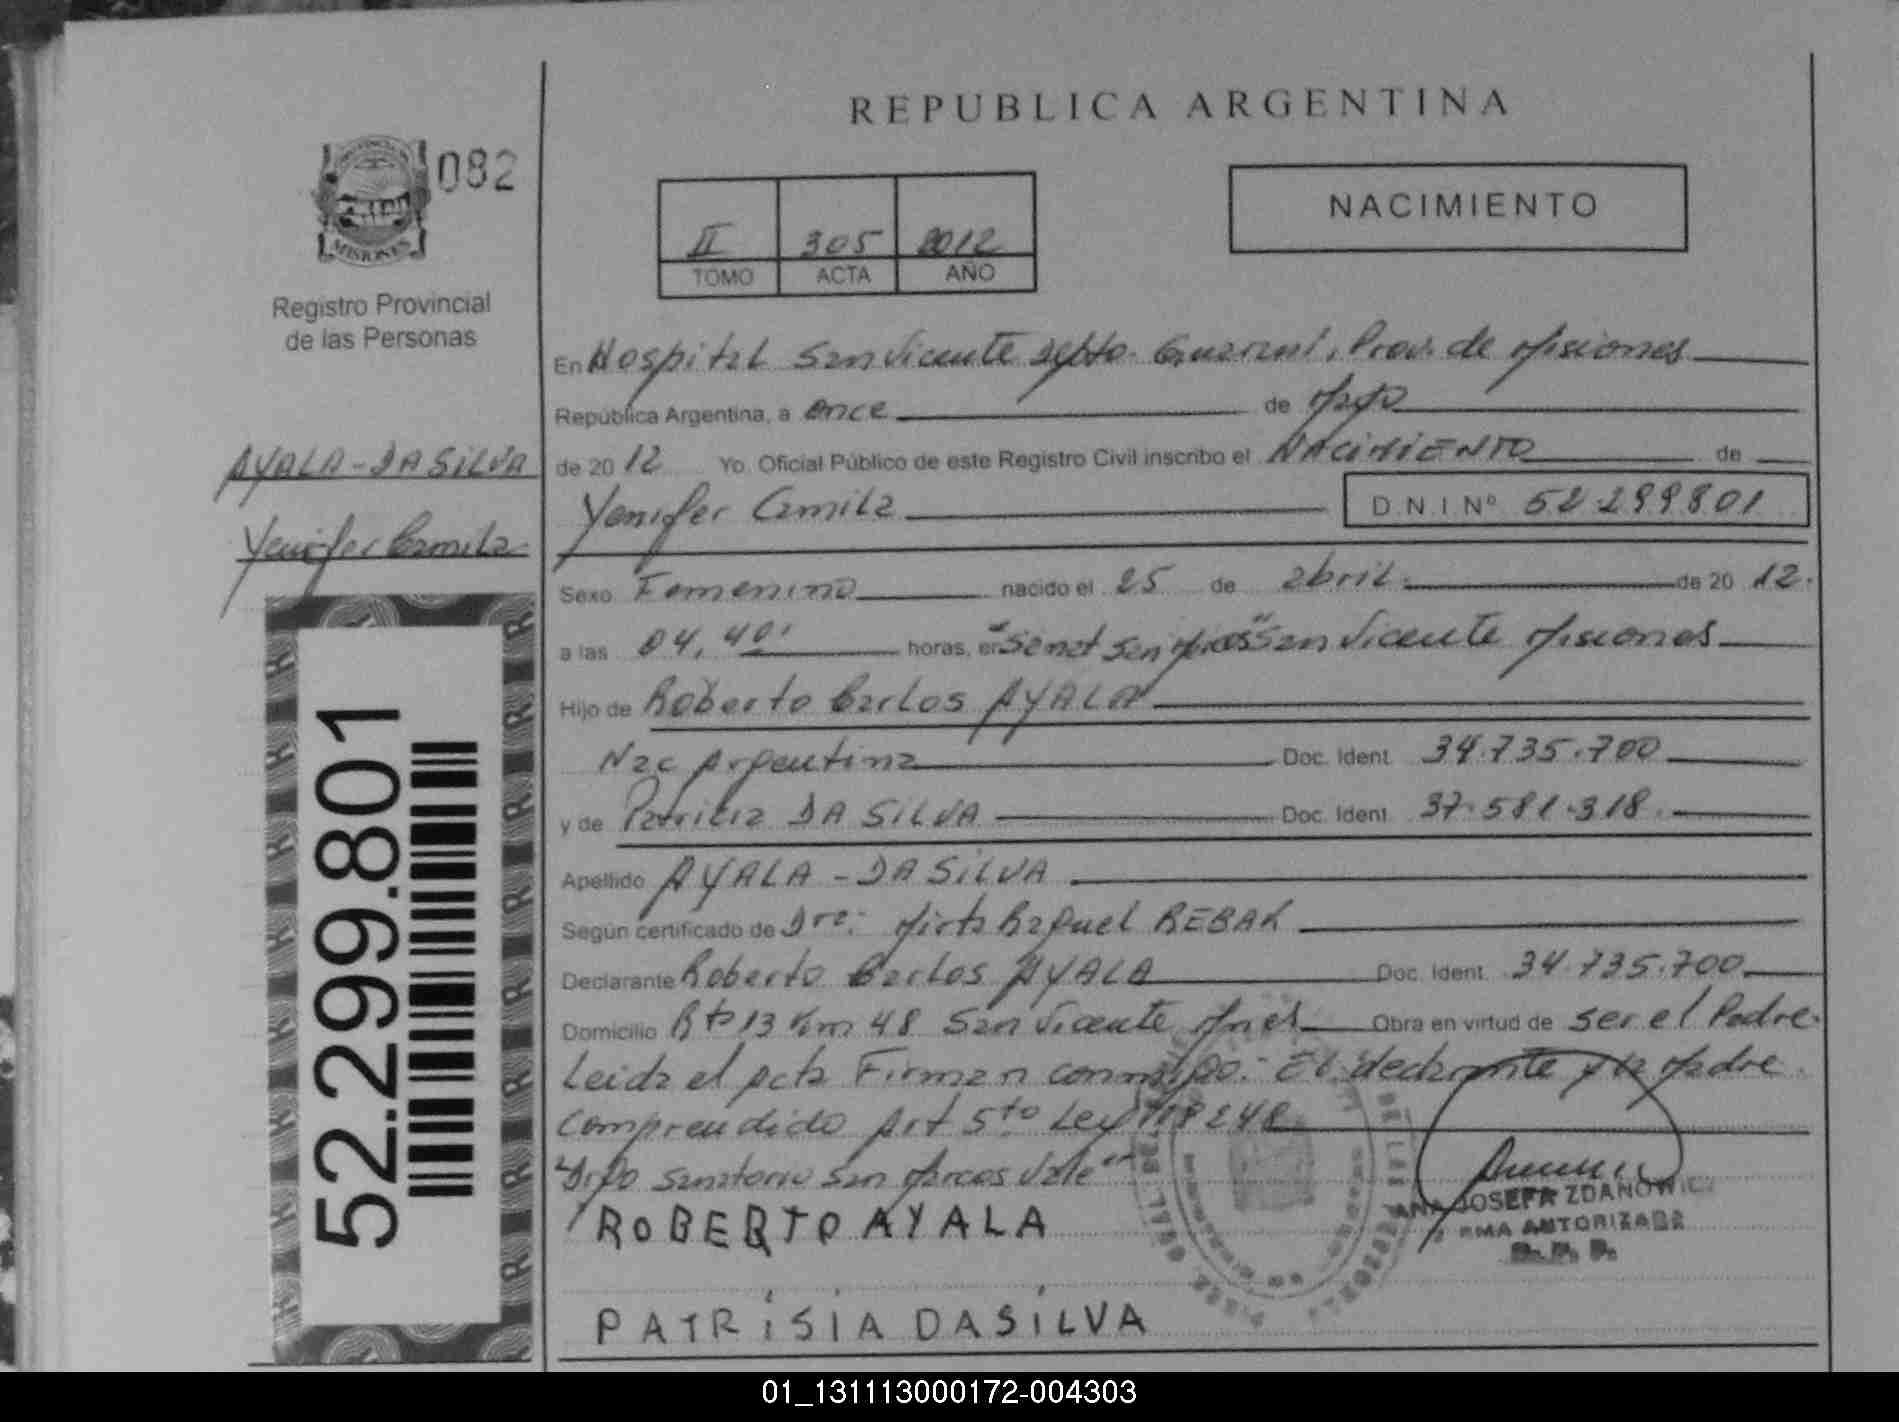 REPUBLICA ARGENTINA
082
MISIONES
Registro Provincial
de las Personas
II 305 2012
TOMO ACTA AÑO
NACIMIENTO
AYALA-DA SILVA
Yenifer Camila
52.299.801
En Hospital San Vicente Depto. Guaraní, Prov. de Misiones
República Argentina, a once de Mayo
de 2012 Yo Oficial Público de este Registro Civil inscribo el NACIMIENTO de
Yenifer Camila D.N.I Nº 52.299801
Sexo Femenino nacido el 25 de abril. de 2012.
a las 04,40' horas, en "Sanat San Marcos" San Vicente Misiones
Hijo de Roberto Carlos AYALA
Nac Argentina Doc. Ident. 34.735.700
y de Patricia DA SILVA Doc. Ident. 37.581.318.
Apellido AYALA - DA SILVA
Según certificado de Dra: Mirta Raquel REBAK
Declarante Roberto Carlos AYALA Doc. Ident. 34.735.700
Domicilio Rta 13 Km 48 San Vicente Mnes Obra en virtud de ser el Padre.
Leida el acta Firman conmigo. El declarante y la Madre.
Comprendido Art 5to Ley 18248
"Digo Sanatorio San Marcos Vale"
ROBERTO AYALA
ANA JOSEFA ZDANOWICZ
FIRMA AUTORIZADA
PATRiSiA DASiLVA
01_131113000172-004303